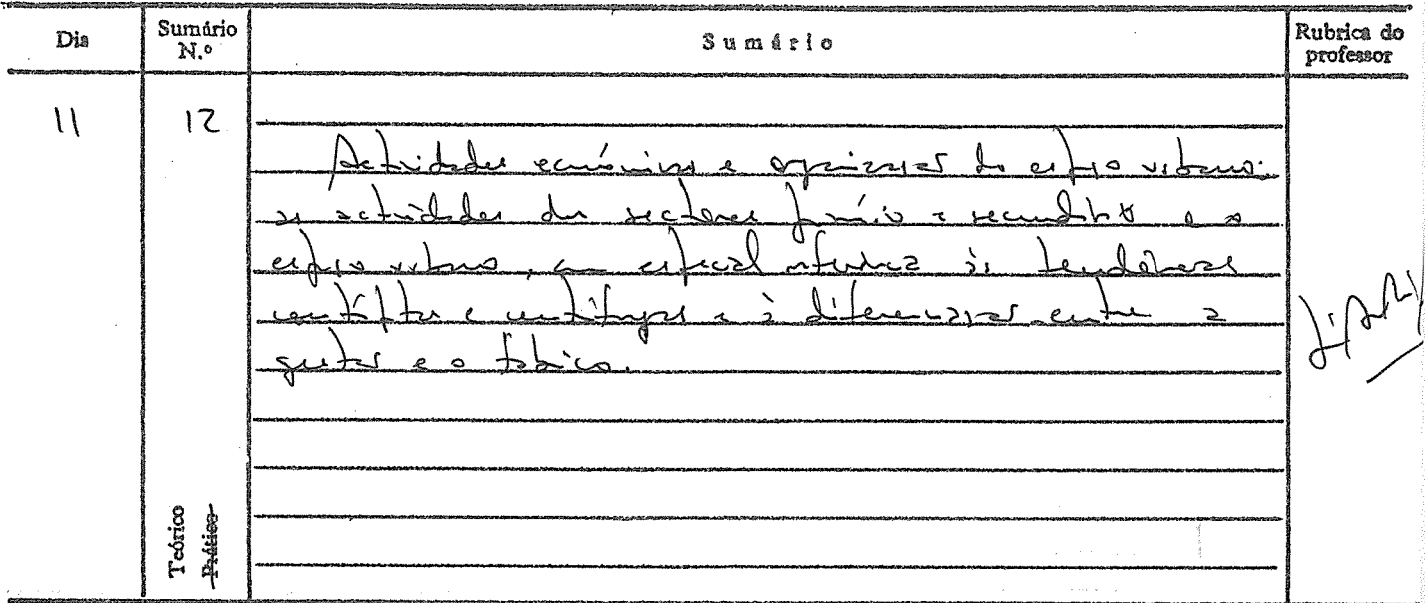 Dia Sumário N.º Sumário Rubrica do professor
11 12
Actividades económicas e organização do espaço urbano:
as actividades dos sectores primário e secundário e o
espaço urbano, com especial referência às tendências
centrípetas e centrífugas e à diferenciação entre a
gestão e o fabrico.
Teórico
Prático